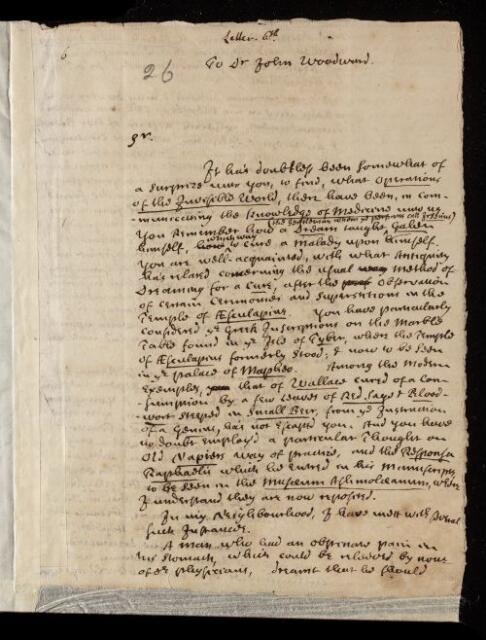 Letter. 6th
6
26
To Dr John Woodward.
Sr.
It has doubtless been somewhat of
a surprize unto you, to find, what Operations
of the Invisible World, there have been, in com-
municating the Knowledge of Medicine unto us.
You Remember how a Dream taught Galen
(the gentleman whom ye profane call
himself, which way to cure a malady upon himself.
You are well-acquainted, with what Antiquity
has related concerning the usual Method of
Dreaming for a Cure, after the Observation
of certain Ceremonies and Superstitions in the
Temple of Æsculapius. You have particularly
Considered ye Greek Inscriptions on the Marble
Table found in ye Isle of Tyber, where the Temple
of Æsculapius formerly stood; & now to be seen
in ye Palace of Mapheo. Among the Modern
Exemples, that of Wallace cured of a Con-
sumption by a few leaves of Red Sage & Blood-
wort steeped in Small Beer, from ye Instruction
of a Genius, has not escap'd you. And you have
no doubt employ'd a particular Thought on
Old Napiers way of practice, and the Responsa
Raphaelis which he entred in his Manuscripts
to be seen in the Musæum Ashmoleanum, where
I understand they are now reposed.
In my Neighbourhood, I have mett with several
such Instances.
A man who had an obstinate pain in
his stomach, which could be releeved by none
of ye physicians, dreamt that he should